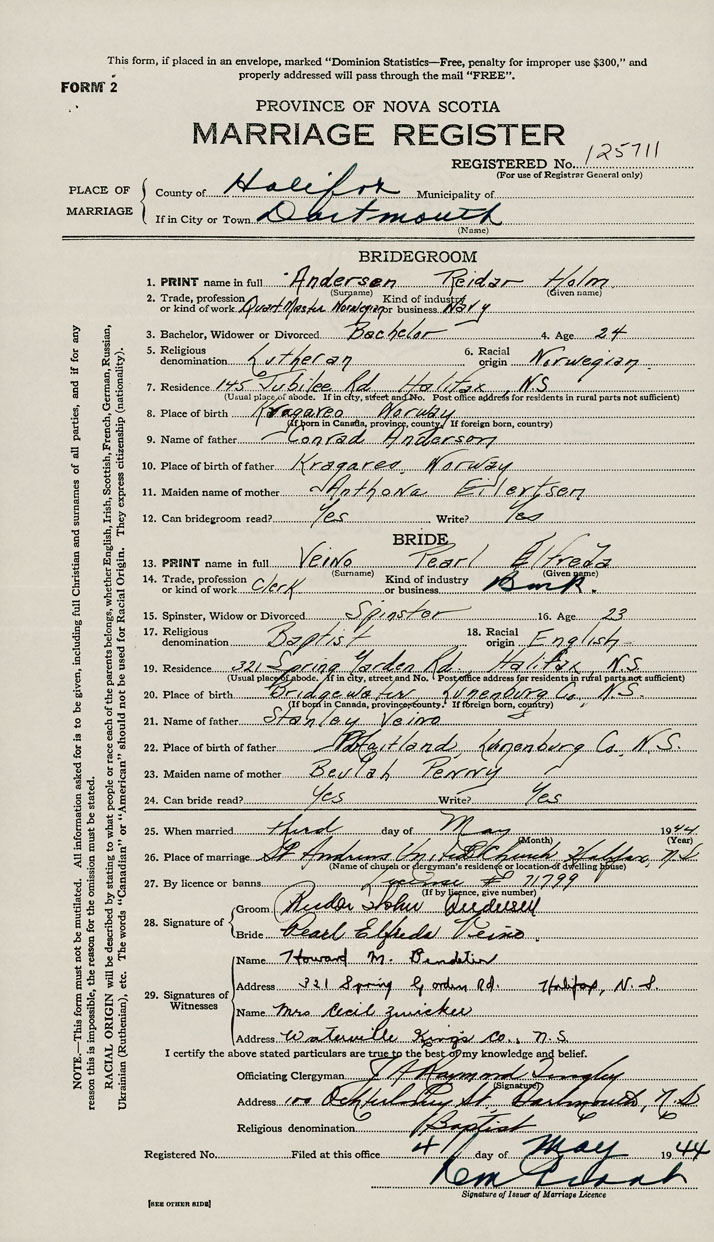 This form, if placed in an envelope, marked "Dominion Statistics—Free, penalty for improper use $300," and
properly addressed will pass through the mail "FREE".
FORM 2
PROVINCE OF NOVA SCOTIA
MARRIAGE REGISTER
REGISTERED No. 125711
(For use of Registrar General only)
PLACE OF MARRIAGE
County of Halifax Municipality of
If in City or Town Dartmouth
(Name)
BRIDEGROOM
1. PRINT name in full Andersen Reidar Holm
(Surname) (Given name)
2. Trade, profession or kind of work Quart Master Norwegian Kind of industry or business Navy
3. Bachelor, Widower or Divorced Bachelor 4. Age 24
5. Religious denomination Lutheran 6. Racial origin Norwegian
7. Residence 145 Jubilee Rd. Halifax, N.S
(Usual place of abode. If in city, street and No. Post office address for residents in rural parts not sufficient)
8. Place of birth Kragareo Norway
(If born in Canada, province, county. If foreign born, country)
9. Name of father Conrad Anderson
10. Place of birth of father Kragareo, Norway
11. Maiden name of mother Anthona Eilertsen
12. Can bridegroom read? Yes Write? Yes
BRIDE
13. PRINT name in full Veino Pearl Elfreda
(Surname) (Given name)
14. Trade, profession or kind of work Clerk Kind of industry or business Bank.
15. Spinster, Widow or Divorced Spinster 16. Age 23
17. Religious denomination Baptist 18. Racial origin English
19. Residence 321 Spring Garden Rd., Halifax, N.S
(Usual place of abode. If in city, street and No. Post office address for residents in rural parts not sufficient)
20. Place of birth Bridgewater Lunenburg Co., N.S.
(If born in Canada, province, county. If foreign born, country)
21. Name of father Stanley Veino
22. Place of birth of father Maitland, Lunenburg Co. N.S.
23. Maiden name of mother Beulah Penny
24. Can bride read? Yes Write? Yes
25. When married third day of May 1944
(Month) (Year)
26. Place of marriage St Andrews United Church Halifax, N.S
(Name of church or clergyman's residence or location of dwelling house)
27. By licence or banns License # 71799
(If by licence, give number)
28. Signature of
Groom Reidar Holm Andersen
Bride Pearl Elfreda Veino.
29. Signatures of Witnesses
Name Howard M.
Address 321 Spring Garden Rd. Halifax, N.S.
Name Mrs Cecil Zwicker
Address Waterville Kings Co., N.S
I certify the above stated particulars are true to the best of my knowledge and belief.
Officiating Clergyman Raymond
(Signature)
Address 100 Ochterloney St, Dartmouth, N.S
Religious denomination Baptist
Registered No. Filed at this office 4 day of May 1944
Signature of Issuer of Marriage Licence
[SEE OTHER SIDE]
NOTE.—This form must not be mutilated. All information asked for is to be given, including full Christian and surnames of all parties, and if for any
reason this is impossible, the reason for the omission must be stated.
RACIAL ORIGIN will be described by stating to what people or race each of the parents belongs, whether English, Irish, Scottish, French, German, Russian,
Ukrainian (Ruthenian), etc. The words "Canadian" or "American" should not be used for Racial Origin. They express citizenship (nationality).